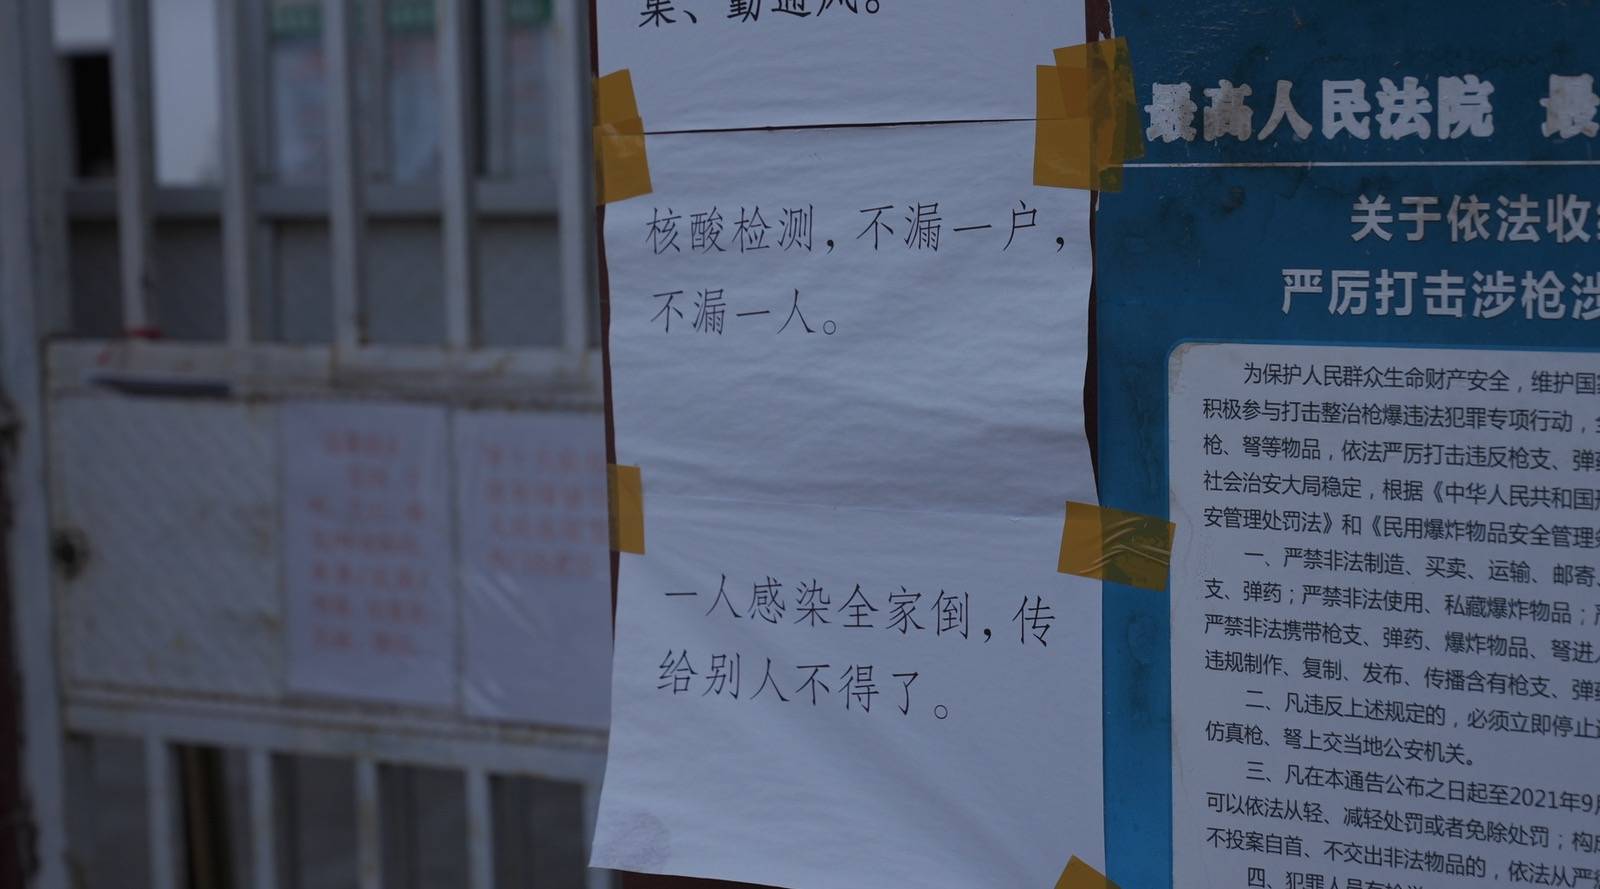 集、勤通风。
核酸检测，不漏一户，
不漏一人。
一人感染全家倒，传
给别人不得了。
最高人民法院 最
关于依法收
严厉打击涉枪涉
为保护人民群众生命财产安全，维护国家
积极参与打击整治枪爆违法犯罪专项行动，全
枪、弩等物品，依法严厉打击违反枪支、弹药
社会治安大局稳定，根据《中华人民共和国刑
安管理处罚法》和《民用爆炸物品安全管理条
一、严禁非法制造、买卖、运输、邮寄、
支、弹药；严禁非法使用、私藏爆炸物品；严
严禁非法携带枪支、弹药、爆炸物品、弩进入
违规制作、复制、发布、传播含有枪支、弹药
二、凡违反上述规定的，必须立即停止违
仿真枪、弩上交当地公安机关。
三、凡在本通告公布之日起至2021年9月
可以依法从轻、减轻处罚或者免除处罚；构成
不投案自首、不交出非法物品的，依法从严
四、犯罪人员有检举